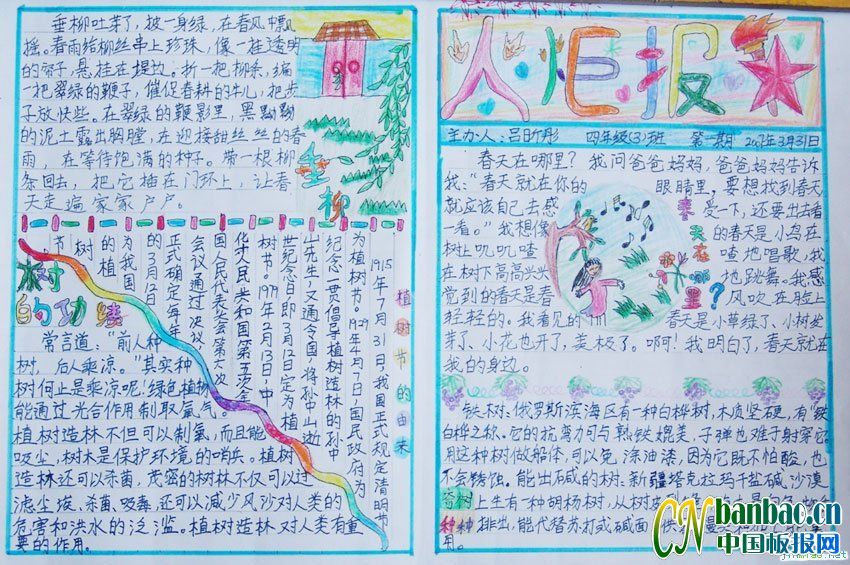 垂柳吐芽了，披一身绿，在春风中飘
摇。春雨给柳丝串上珍珠，像一挂透明
的帘子，悬挂在堤边。折一把柳条，编
一把翠绿的鞭子，催促春耕的牛儿，把步
子放快些。在翠绿的鞭影里，黑黝黝
的泥土露出胸膛，在迎接甜丝丝的春
雨，在等待饱满的种子。带一根柳
条回去，把它插在门环上，让春
天走遍家家户户。
垂柳
植树节的由来
1915年7月31日，我国正式规定清明节
为植树节。1929年4月7日，国民政府为
纪念一贯倡导植树造林的孙中
山先生，又通令全国，将孙中山逝
世纪念日即3月12日定为植
树节。1979年2月13日中
华人民共和国第五次全
国人民代表大会第六次
会议通过决议，
正式确定每年
的3月12日
为我国
的植
树节
树的功绩
常言道："前人种
树，后人乘凉。"其实种
树何止是乘凉呢！绿色植物
能通过光合作用制取氧气。
植树造林不但可以制氧，而且能
吸尘，树木是保护环境的哨兵。植树
造林还可以杀菌。茂盛的树林不仅可以过
滤尘埃、杀菌、吸毒，还可以减少风沙对人类的
危害和洪水的泛滥。植树造林对人类有重
要的作用。
火炬报
主办人：吕昕彤 四年级(3)班 第一期 2007年3月31日
春天在哪里？我问爸爸妈妈，爸爸妈妈告诉
我："春天就在你的眼睛里，要想找到春天
就应该自己去感受一下，还要出去看
一看。"我想像的春天是小鸟在
树上叽叽喳喳地唱歌，我
在树下高高兴兴地跳舞。我感
觉到的春天是春风吹在脸上
轻轻的。我看见的春天是小草绿了、小树发
芽了、小花也开了，美极了。啊！我明白了，春天就在
我的身边。
春天在哪里？
铁树：俄罗斯滨海区有一种白桦树，木质坚硬，有"铁
白桦"之称。它的抗弯力可与熟铁媲美，子弹也难于射穿它。
用这种树做船体，可以免涂油漆，因为它既不怕酸，也
不会锈蚀。能出碱的树：新疆塔克拉玛干盐碱沙漠
上生有一种胡杨树，从树
排出，能代替苏打或碱面
用。
奇树种种
CN banbao.cn
中国板报网
jinmiao.net